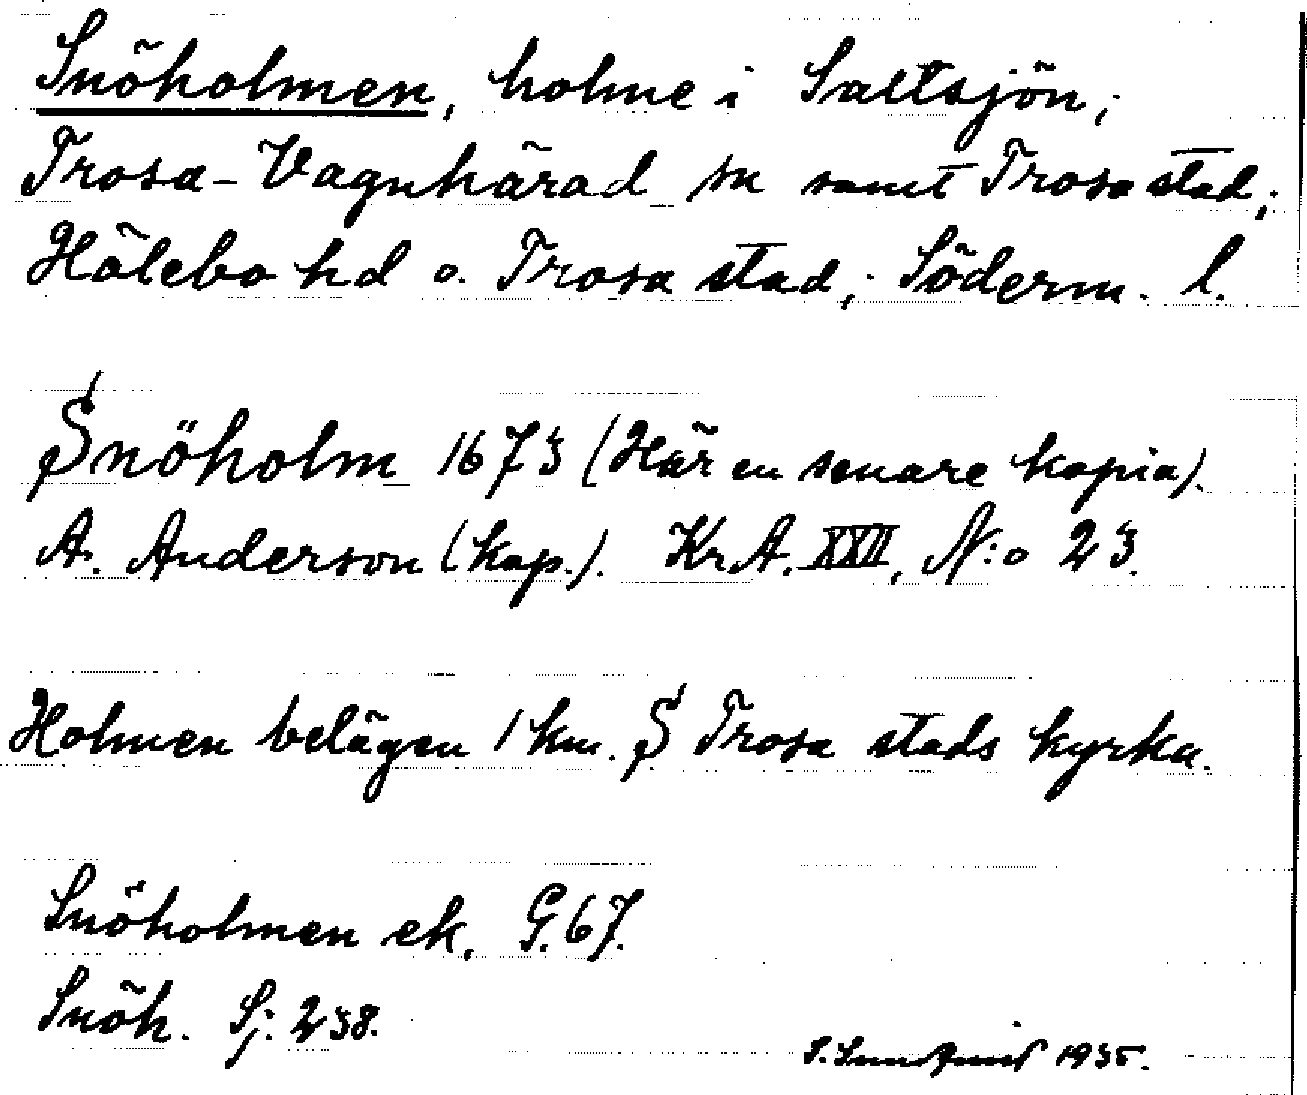 Snöholmen, holme i Saltsjön,
Trosa-Vagnhärad sn samt Trosa stad;
Hölebo hd o. Trosa stad; Söderm. l.
Snöholm 1673 (Här en senare kopia).
A. Anderson (kop.). Kr.A. XXII, N:o 23.
Holmen belägen 1 km. S Trosa stads kyrka.
Snöholmen ek. G. 67.
Snöh. Sj: 238.
S. 1935.